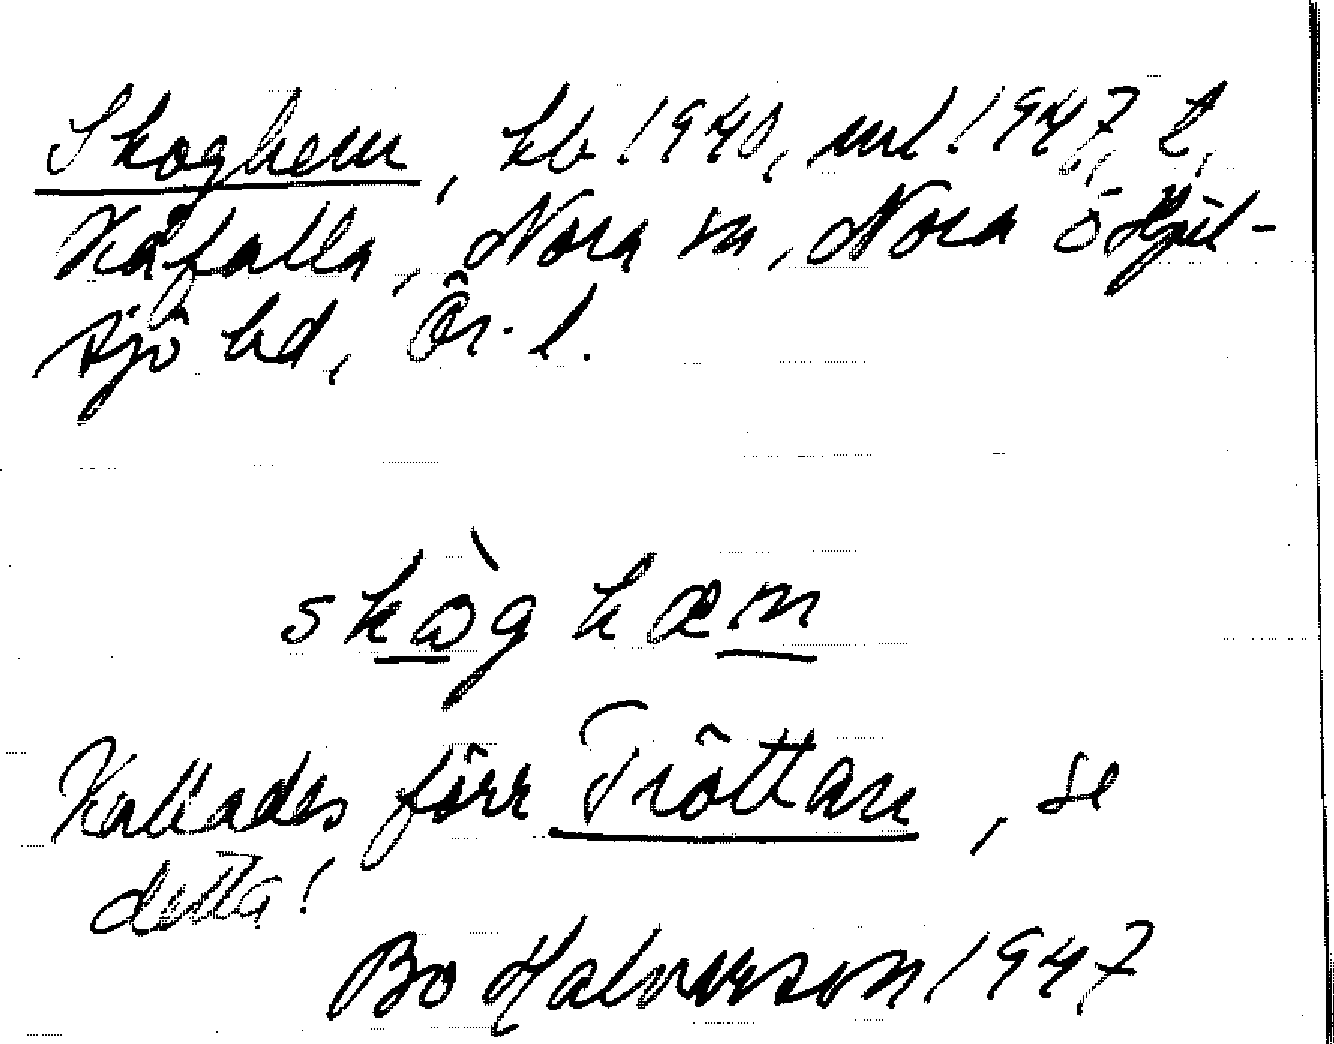 Skoghem, kb 1940, ml 1947, l,
Kåfalla, Nora sn, Nora o Hjul-
sjö bd, Ör. l.
skòghæm
Kallades förr Tröttan, se
detta!
Bo Halvarson 1947